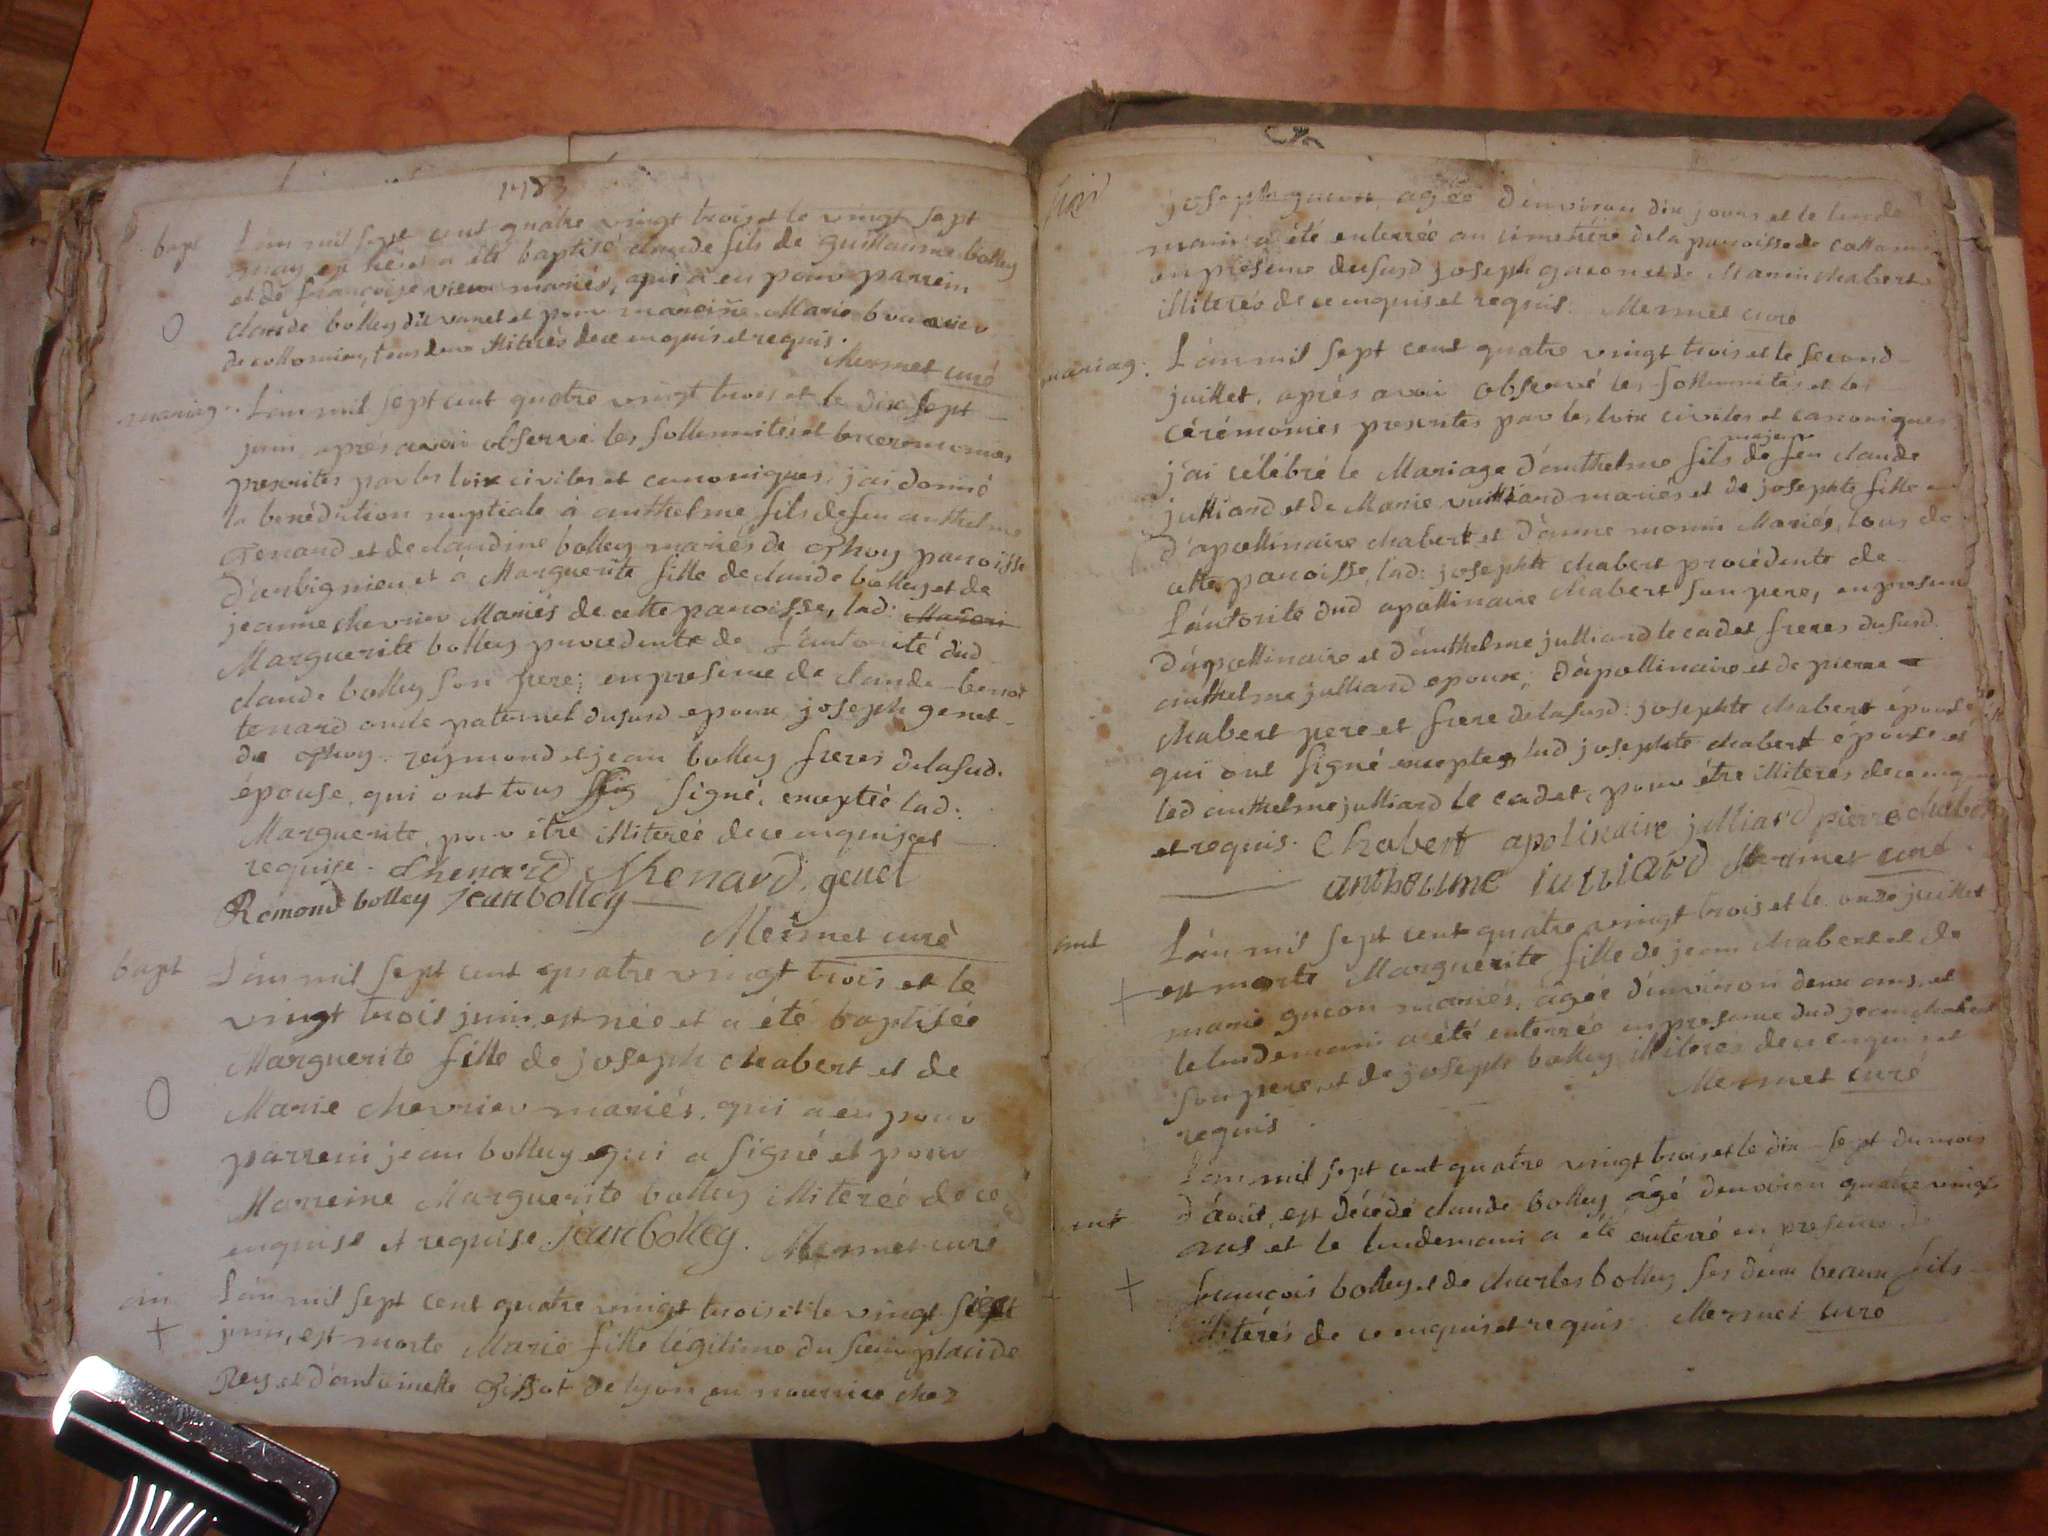 1783
bapt L'an mil sept cent quatre vingt trois et le vingt sept
may est né et a été baptisé claude fils de guillaume bolley
et de françoise vieux mariés, qui a eu pour parrein
claude bolley dit vanet et pour mareine Marie
de collomieu, tous deux illiterés de ce enquis et requis.
Mermet curé
mariag. L'an mil sept cent quatre vingt trois et le dix sept
juin, aprés avoir observé les sollemnités et les ceremonies
prescrites par les loix civiles et canoniques, j'ai donné
la benédiction nuptiale à anthelme fils de feu anthelme
Tenard et de claudine bolley mariés de Thoy paroisse
d'arbignieu et à Marguerite fille de claude bolley et de
jeanne chevrier Mariés de cette paroisse, lad:
Marguerite bolley procedente de l'autorité dud
claude bolley son frere; en presence de claude benoit
tenard oncle paternel dususd epoux joseph genet
de Thoy reymond et jean bolley freres de lasusd.
épouse, qui ont tous signé, excepté lad:
Marguerite, pour être illiterée de ce enquise et
requise. Thenard Thenard genet
Remond bolley jean bolley
Mermet curé
bapt L'an mil sept cent quatre vingt trois et le
vingt trois juin est née et a été baptisée
Marguerite fille de joseph chabert et de
Marie chevrier mariés, qui a eu pour
parrein jean bolley qui a signé et pour
Marreine Marguerite bolley illiterée de ce
enquise et requise. jean bolley. Mermet curé
L'an mil sept cent quatre vingt trois et le vingt sept
juin, est morte Marie fille légitime du sieur placide
Rey et d'antoinette Tissot de lyon en nourrice chez
joseph gucon agée d'environ dix jours et le lende
main a été enterrée au cimetiere de la paroisse de collomieu
en présence dusuſd joseph gucon et de Marin chabert
illiterés de ce enquis et requis. Mermet curé
mariag. L'an mil sept cent quatre vingt trois et le second
juillet, aprés avoir observé les sollemnités et les
cérémonies prescrites par les loix civiles et canoniques
j'ai célébré le Mariage d'anthelme fils majeur de feu claude
julliard et de Marie vulliard mariés et de josephte fille
d'apollinaire chabert et d'anne monin Mariés, tous de
cette paroisse, lad: josephte chabert procédente de
l'autorité dud apollinaire chabert son pere, en presence
d'apollinaire et d'anthelme julliard le cadet freres dusuſd
anthelme julliard epoux; d'apollinaire et de pierre
chabert pere et frere de lasusd: josephte chabert épouse
qui ont signé exceptés lad josephte chabert épouse et
led anthelme julliard le cadet, pour être illiterés de ce enquis
et requis. Chabert apolinaire julliard pierre chabert
antheume julliard Mermet curé
ent L'an mil sept cent quatre vingt trois et le onze juillet
est morte Marguerite fille de jean chabert et de
marie gucon mariés, âgée d'environ deux ans, et
le lendemain a été enterrée en presence dud jean chabert
son pere, et de joseph bolley illiterés de ce enquis et
requis. Mermet curé
L'an mil sept cent quatre vingt trois et le dix-sept du mois
ent d'août, est décédé claude bolley âgé d'environ quatre vingt
ans et le lendemain a été enterré en presence de
françois bolley et de charles bolley ses deux beaux fils
illiterés de ce enquis et requis. Mermet curé